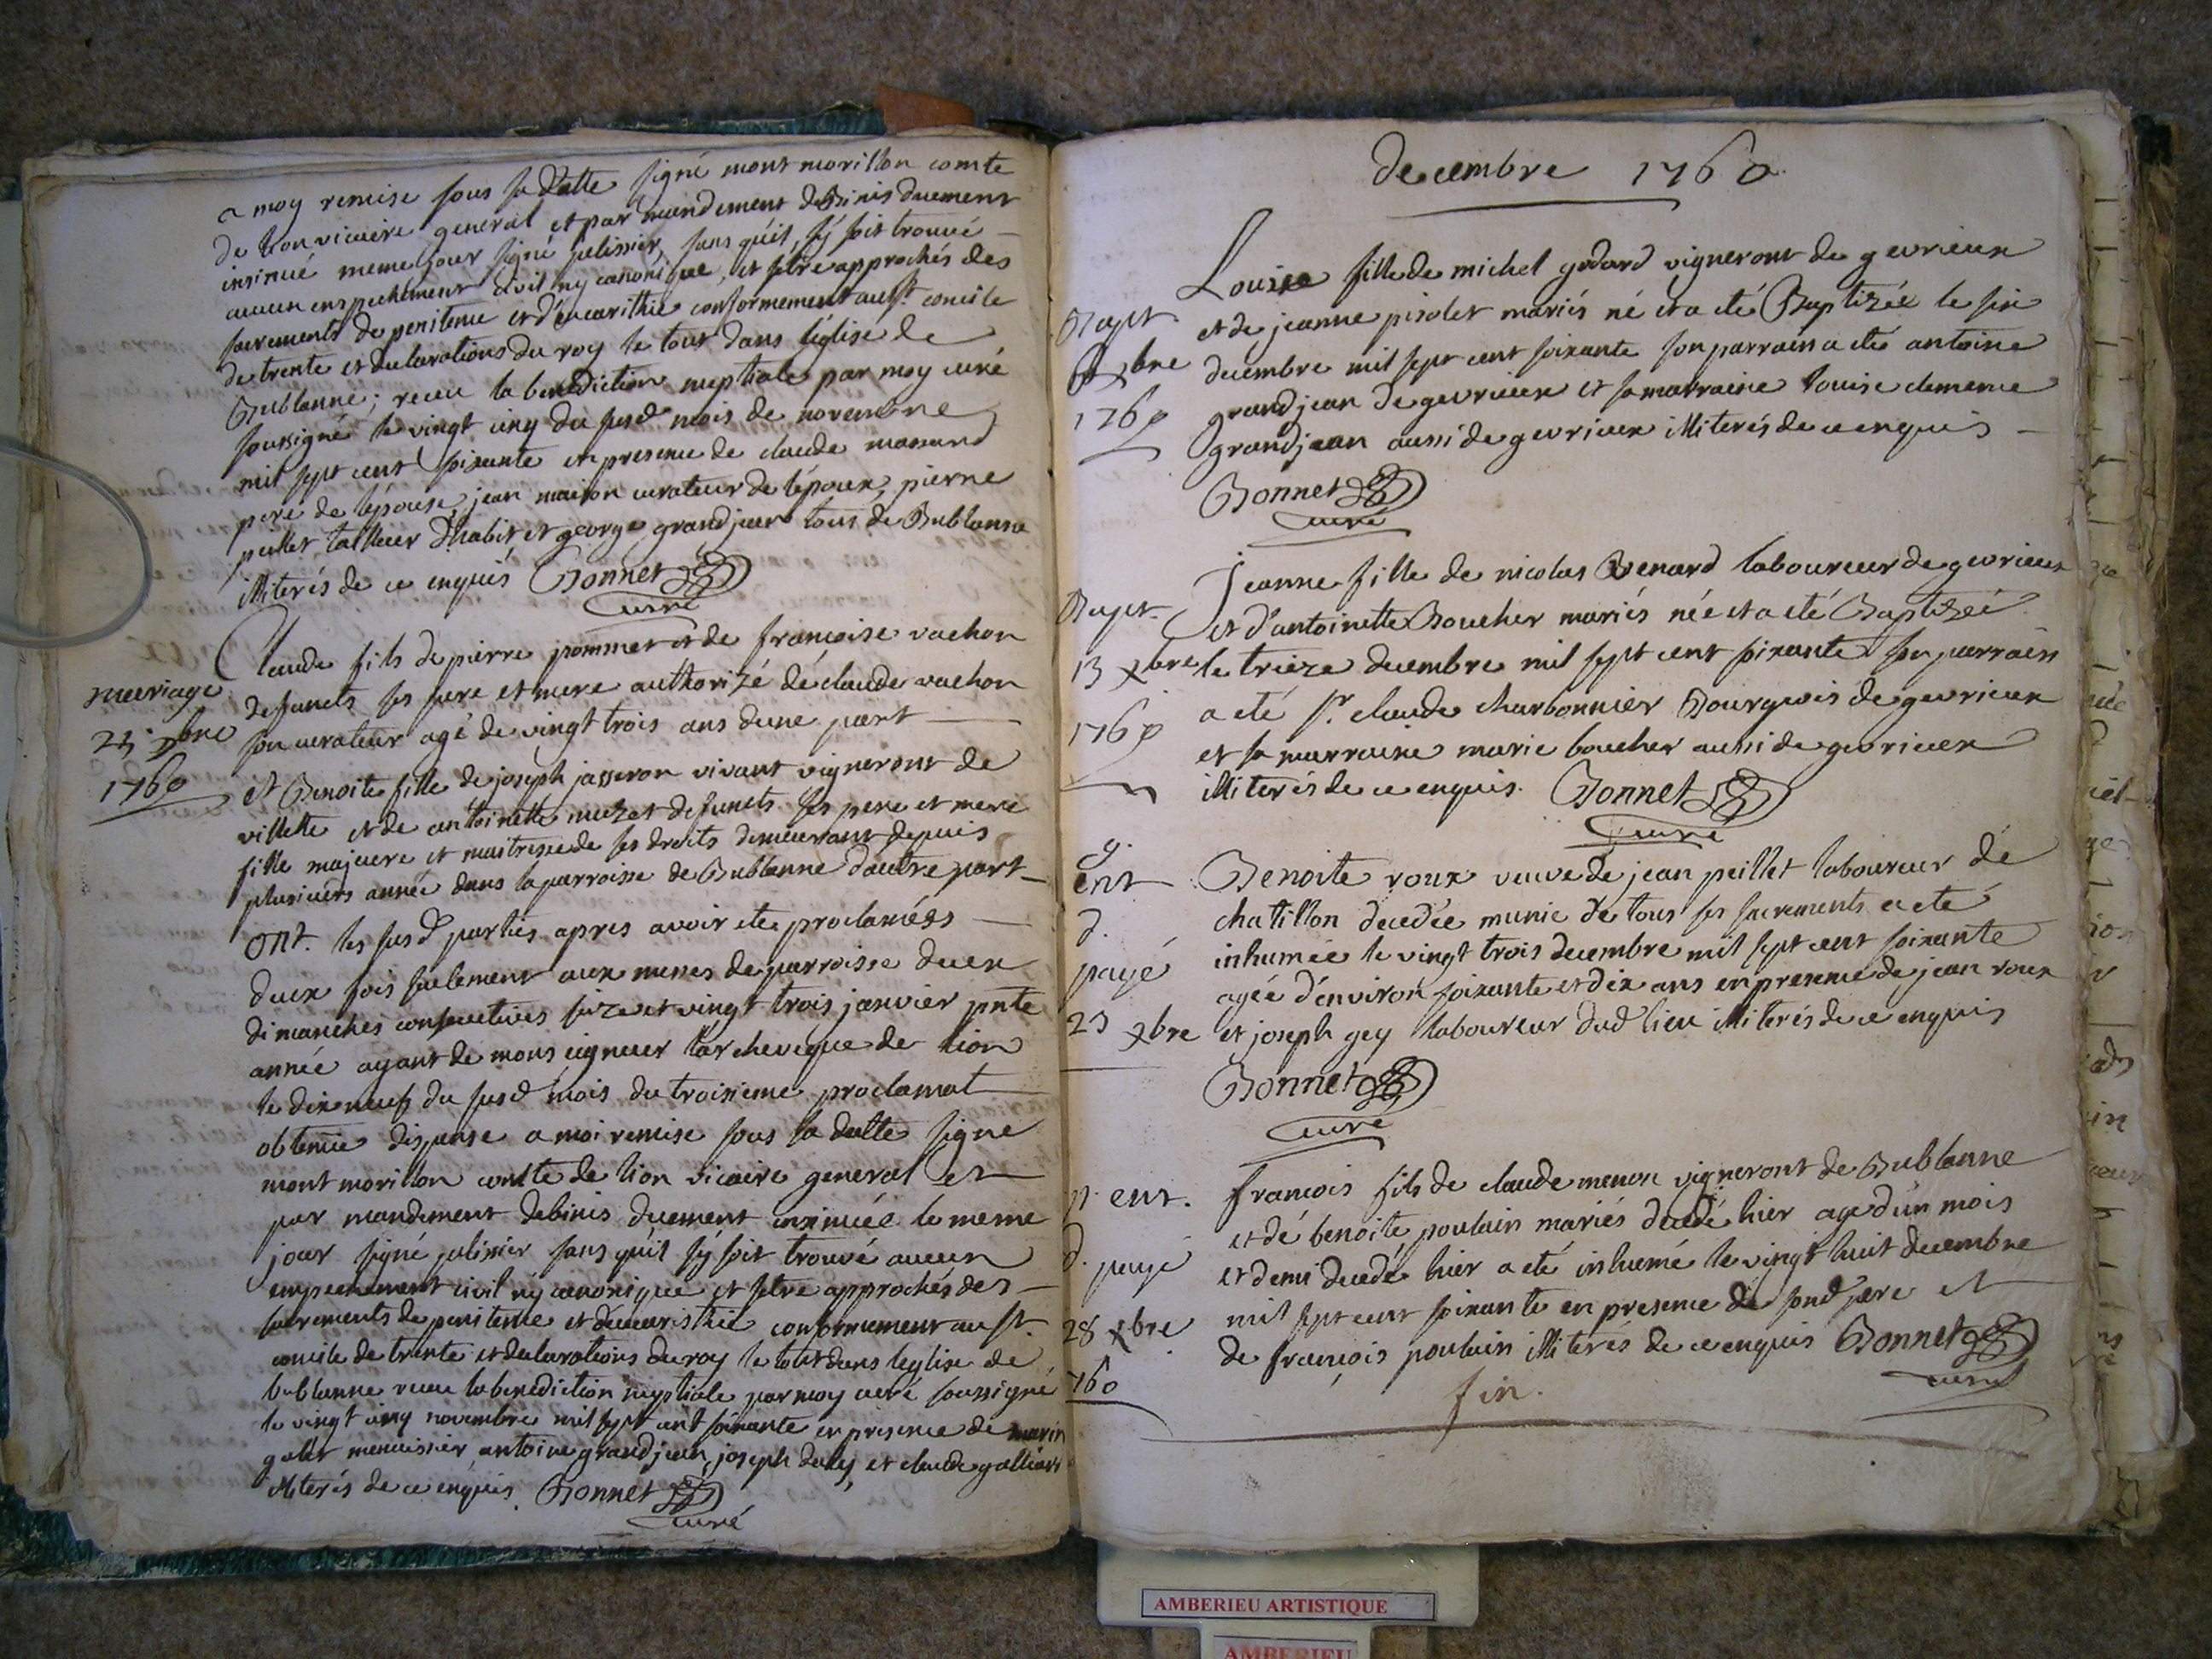 a moy remise sous sa datte signé mont morillon comte
de lion vicaire general et par mandement debinis duement
insinué meme jour signé pelissier, sans quil sÿ soit trouvé
aucun empechement civil ny canonique, et setre approchés des
sacrements de penitence et d'eucarithie conformement au st concile
de trente et declarations du roy le tout dans l'église de
Bublanne; receu la benediction nuptiale par moy curé
soussigné le vingt cinq du susd mois de novembre
mil sept cent soixante en presence de claude massard
pere de lépouse, jean maison curateur de lépoux, pierre
peillet tailleur d'habit et george grandjean tous de Bublanne
illiterés de ce enquis Bonnet
curé
mariage
25 9bre
1760
Claude fils de pierre pommet et de francoise vachon
defuncts ses pere et mere authorizé dé claude vachon
son curateur agé de vingt trois ans dune part
et Benoite fille de joseph jasseron vivant vigneront de
villette et de antoinette muzet defuncts ses pere et mere
fille majeure et maitresse de ses droits demeurant depuis
plusieurs année dans la parroisse de Bublanne dautre part
ont. les susd parties apres avoir ete proclamées
deux fois seulement aux messes de parroisse deux
dimanches consecutives seize et vingt trois janvier pnte
année ayant de monseigneur larcheveque de lion
le dix neuf du susd mois du troisieme proclamat
obtenue dispense a moi remise sous sa datte signe
mont morillon comte de lion vicaire general et
par mandement debinis duement insinuée le meme
jour signé pelissier sans quil sÿ soit trouvé aucun
empechement civil nÿ canonique et setre approchés des
sacrements de penitence et deucaristhie conformement au st.
concile de trente et declarations du roy le tout dans leglise de
bublanne receu la benediction nuptiale par moy curé soussigné
le vingt cinq novembre mil sept cent soixante en presence de marin
galet menuissier, antoine grandjean, joseph et claude
illiterés de ce enquis Bonnet
curé
decembre 1760
Bapt
6 xbre
1760
Louise fille de michel godard vigneront de gevrieux
et de jeanne pisolet mariés né et a eté Baptizée le six
decembre mil sept cent soixante son parrain a eté antoine
grandjean de gevrieux et sa marraine louise clemence
grandjean aussi de gevrieux illiterés de ce enquis
Bonnet
curé
Bapt.
13 xbre
1760
Jeanne fille de nicolas Benard laboureur de gevrieux
et d'antoinette Boucher mariés née et a eté Baptizée
le trieze decembre mil sept cent soixante son parrain
a eté sr. claude charbonnier Bourgeois de gevrieux
et sa marraine marie boucher aussi de gevrieux
illiterés de ce enquis. Bonnet
curé
g.
ent
d.
payé
23 xbre
Benoite roux veuve de jean peillet laboureur dé
chatillon decedée munie de tous ses sacrements a eté
inhumée le vingt trois decembre mil sept cent soixante
agée d'environ soixante et dix ans en presence de jean roux
et joseph gey laboureur dud lieu illiterés de ce enquis
Bonnet
curé
p. ent.
d. payé
28 xbre
760
francois fils de claude menou vigneront de Bublanne
et dé benoite poulain mariés decedé hier agé d'un mois
et demi decedé hier a eté inhumé le vingt huit decembre
mil sept cent soixante en presence de sond pere et
de françois poulain illiterés de ce enquis Bonnet
curé
fin.
AMBERIEU ARTISTIQUE
AMBERIEU